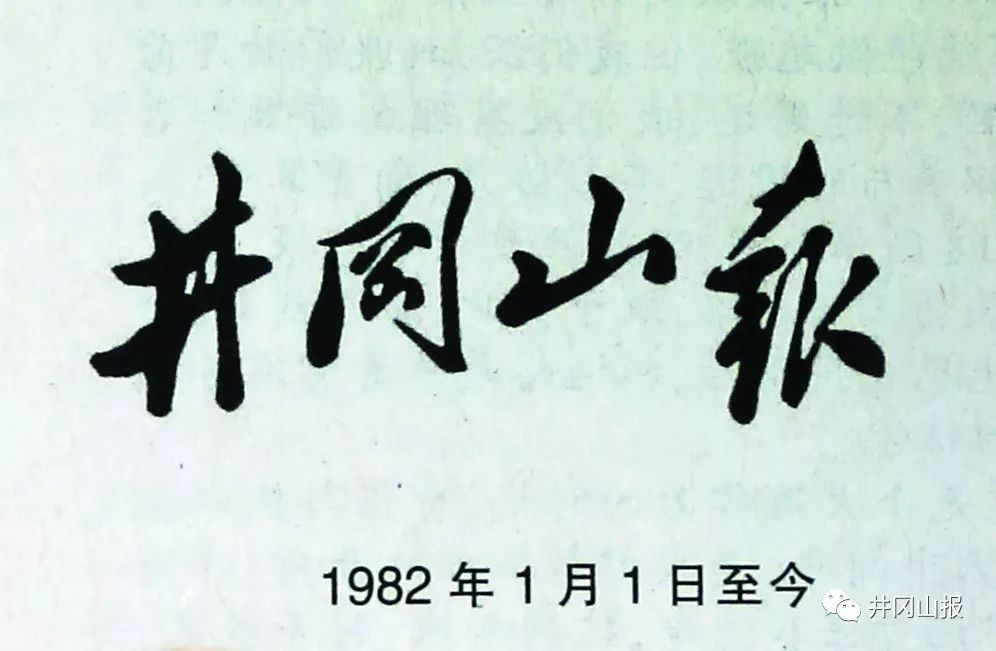 井冈山報
1982年1月1日至今
井冈山报